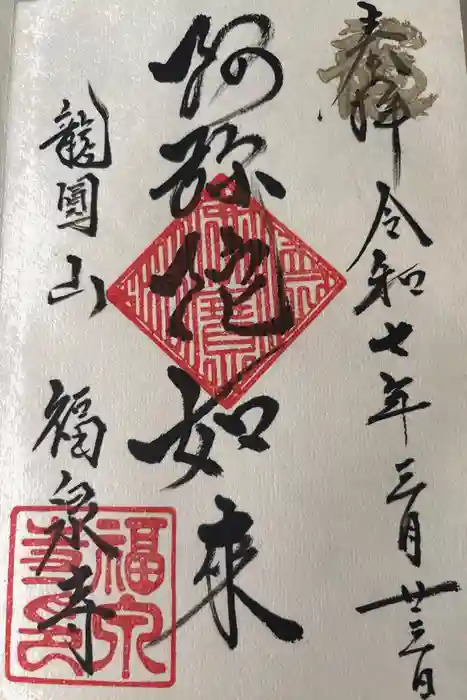 奉拝 令和七年三月廿三日
阿弥陀如来
龍圓山 福泉寺
福泉寺印